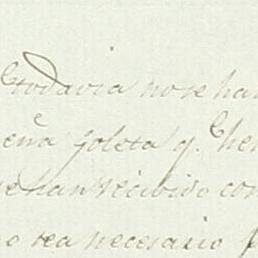 todavia no se han
eña Goleta q.
se han recivido con
no sea necesario